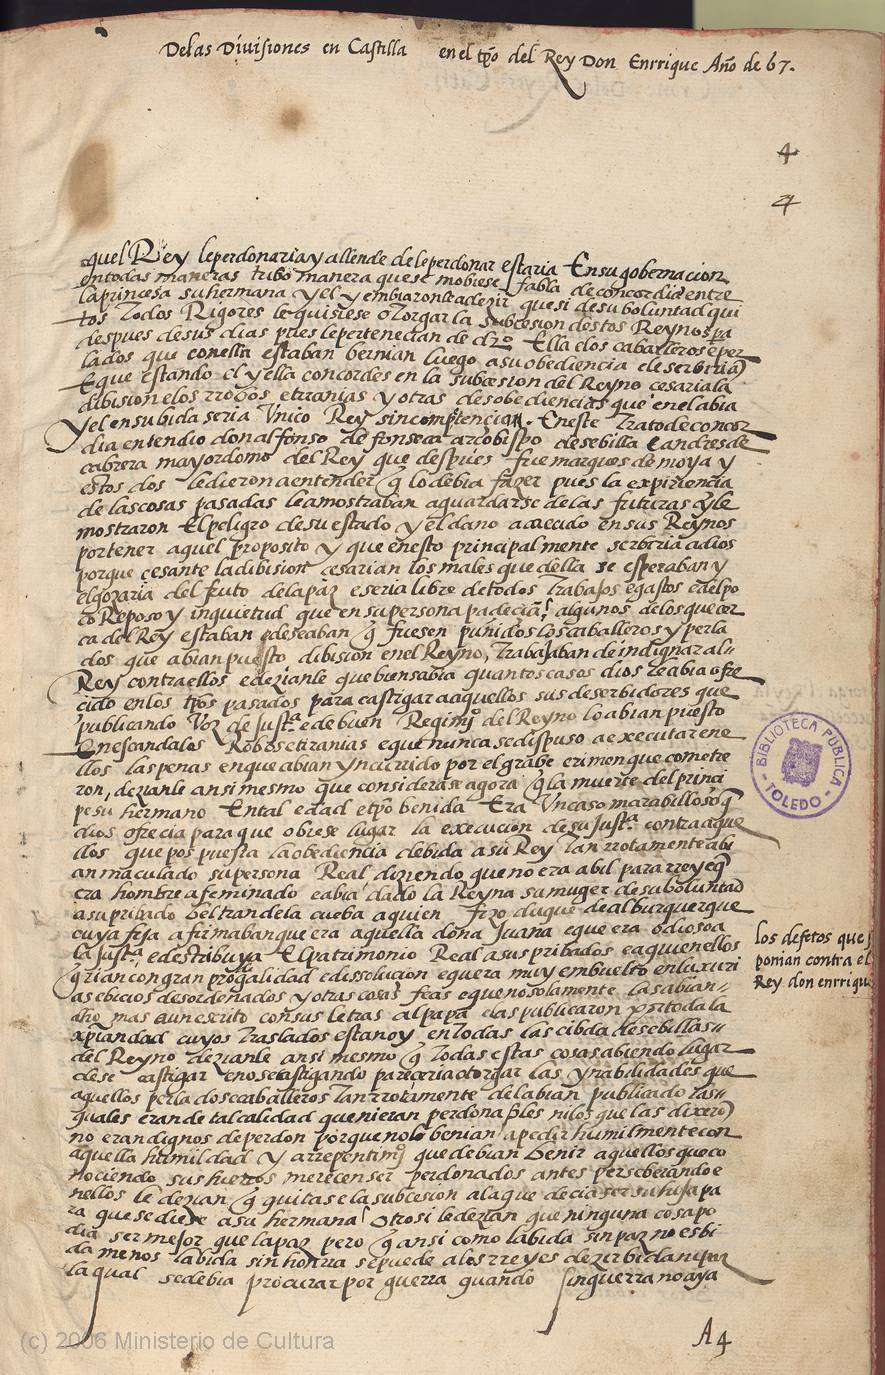 De las Divisiones en Castilla en el tpõ del Rey Don Enrrique Año de 67.
4
4
quel Rey le perdonaria y allende de le perdonar estaria En su gobernacion
en todas maneras tubo manera que se mobiese fabla de concordia entre
la princesa su hermana y el y embiaronle a dezir que si de su boluntad qui
tos todos Rigores le quisiese otorgar la subcesion destos Reynos pa
despues de sus dias pues le pertenecian de drõ Ella e los caballeros e per
lados que con ella estaban bernian luego a su obediencia e le serbirian
E que estando el y ella concordes en la subcesion del Reyno cesaria la
dibision e los rrobos e tiranias y otras desobediencias que en el abia
y el en su bida seria Unico Rey sin competencia. En este trato de concor
dia entendio don alfonso de fonseca arçobispo de sebilla e andres de
cabrera mayordomo del Rey que despues fue marques de moya y
estos dos le dieron a entender q̃ lo debia fazer pues la expiriencia
de las cosas pasadas le amostraban a guardarse de las futuras y le
mostraron El peligro de su estado y el daño acaecido en sus Reynos
por tener aquel proposito y que en esto principalmente serbiria a dios
porque cesante la dibision cesarian los males que della se esperaban y
el gozaria del fruto de la paz e seria libre de todos trabajos e gastos e del po
co Reposo y inquietud que en su persona padecia, algunos de los que cer
ca del Rey estaban e deseaban q̃ fuesen punidos los caballeros y perla
dos que abian puesto dibision en el Reyno, trabajaban de indignar al
Rey contra ellos e dezianle que bien sabia quantos casos dios le abia ofre
cido en los tpõs pasados para castigar a aquellos sus deserbidores que
publicando Voz de Just.ª e de buen Regimj.º del Reyno lo abian puesto
En escandalos Robos e tiranias e que nunca se dispuso a executar en e
llos las penas en que abian yncurrido por el grabe crimen que cometie
ron, dezianle ansi mesmo que considerase agora q̃ la muerte del princi
pe su hermano En tal edad e tpõ benida Era Un caso marabilloso q̃
dios ofrecia para que obiese lugar la execucion de su Just.ª contra aque
llos que pospuesta la obediencia debida a su Rey tan rrotamente abi
an maculado su persona Real diziendo que no era abil para rrey e q̃
era hombre afeminado e abia dado la Reyna su muger de su boluntad
a su pribado beltran de la cueba a quien fizo duque de alburquerque
cuya fija afirmaban que era aquella doña Juana e que era odioso a
la Just.ª e destribuya El patrimonio Real a sus pribados e a quien ellos
q̃rian con gran prodigalidad e dissolucion e que era muy embuelto en luxuri
as e bicios desordenados y otras cosas feas e que no solamente las abian
dho mas aun escrito con sus letras al papa e las publicaron por toda la
xpiandad cuyos traslados estan oy en todas las cibdades e billas
del Reyno dezianle ansi mesmo q̃ todas estas cosas abiendo lugar
de se castigar e no se castigando pareceria otorgar las ynabilidades que
aquellos perlados e caballeros tan rrotamente del abian publicado las
quales eran de tal calidad que ni eran perdonables ni los que las dixerõ
no eran dignos de perdon porque no le benian a pedir humilmente con
aquella humildad y arrepentimj.º que debian benir aquellos que co
nociendo sus hierros merecen ser perdonados antes perseberando e
nellos le dezian q̃ quitase la subcesion a la que decia ser su hija pa
ra que se diese a su hermana otrosi le dezian que ninguna cosa po
dia ser mejor que la paz pero q̃ ansi como la bida sin paz no es bi
da menos la bida sin honrra se puede a los rreyes dezir bida ni paz
la qual se debia procurar por guerra quando sin guerra no aya
los defetos que
ponian contra el
Rey don enrriqu
A4
BIBLIOTECA PÚBLICA
TOLEDO
(c) 2006 Ministerio de Cultura